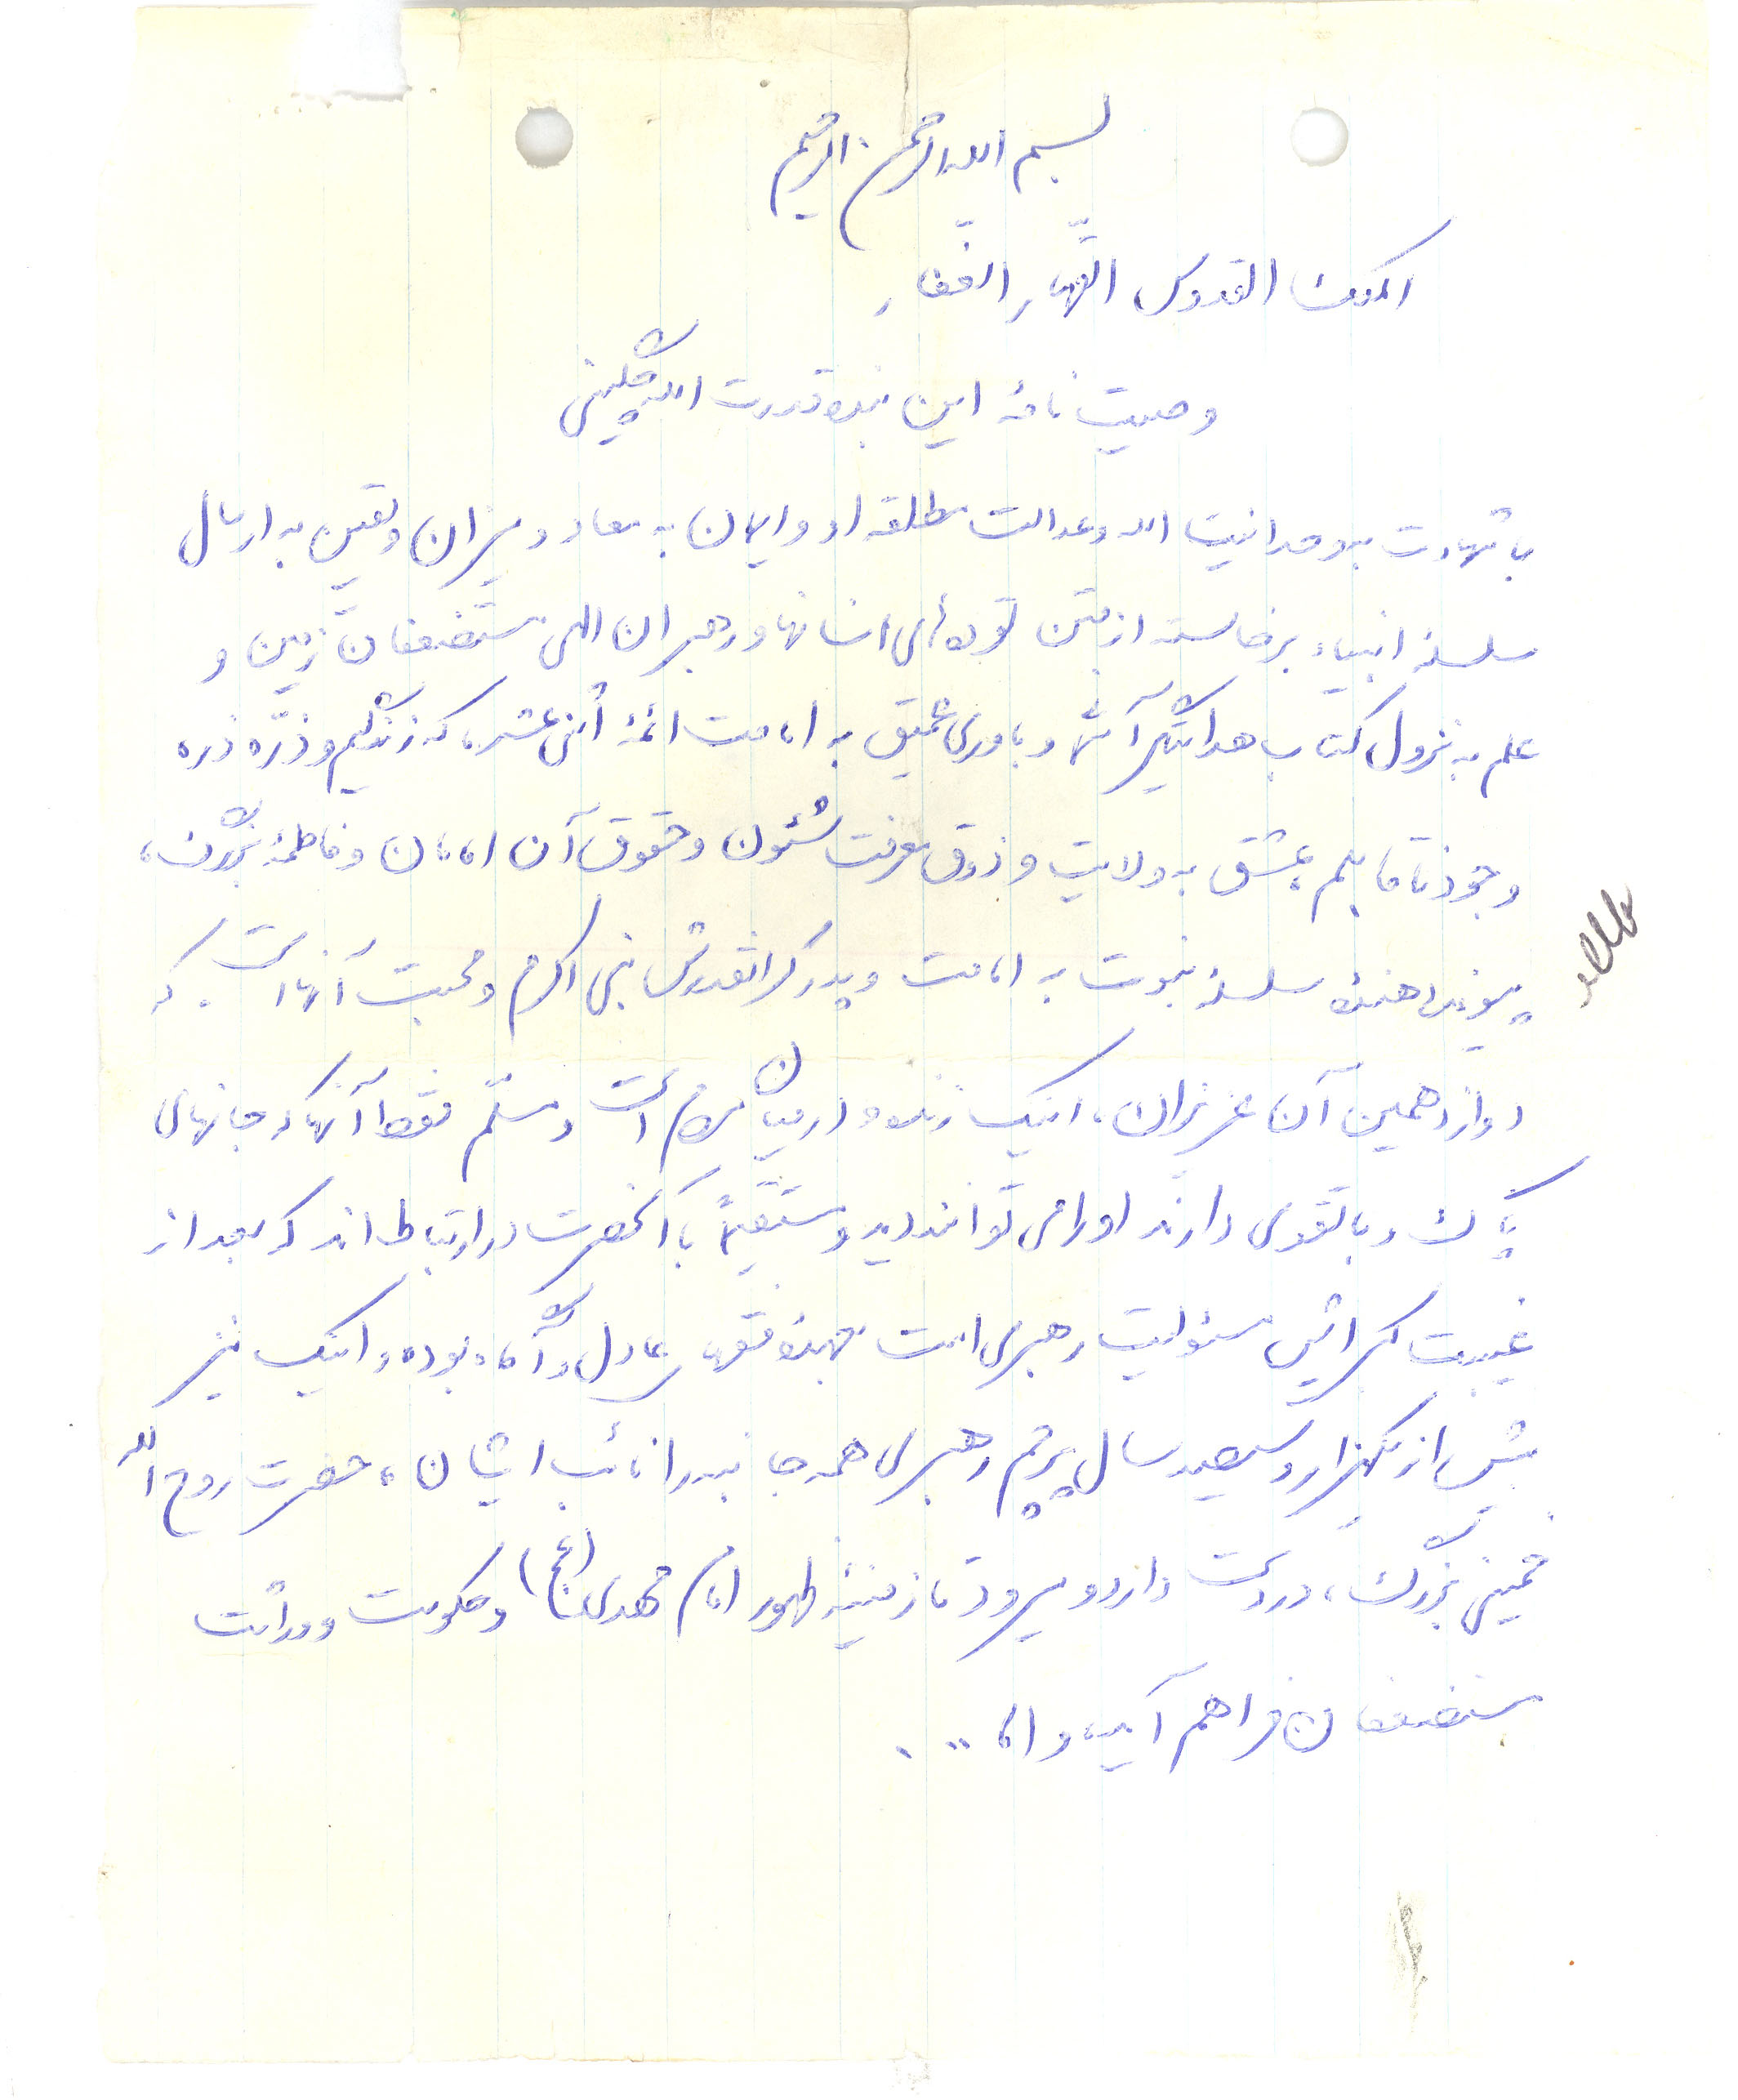 بسم الله الرحمن الرحیم
الملک القدوس القهّار الغفّار
وصیت نامهٔ این بنده قدرت الله چگینی
با شهادت بوحدانیت الله و عدالت مطلقه او و ایمان به معاد و میزان و یقین به ارسال
سلسلهٔ انبیاء برخاسته از متن توده‌های انسانها و رهبران الهی مستضعفان زمین و
علم به نزول کتاب هدایتگر آنها و باوری عمیق به امامت ائمهٔ اثنی عشر، که زندگیم و ذرّه ذره
وجود ناقابلم عشق به ولایت و ذوق معرفت شئون و حقوق آن امامان و فاطمهٔ بزرگ،
پیوند دهندهٔ سلسلهٔ نبوت به امامت و پدر گرانقدرش نبی اکرم و محبت آنهاست. که
دوازدهمین آن عزیزان، اینک زنده و در میان مردم است و مسلّم فقط آنها که جانهای
پاک و با تقوی دارند او را می توانند دید و مستقیماً با آنحضرت در ارتباط اند که بعد از
غیبت کبرایش مسئولیت رهبری امت بعهدهٔ فقهای عادل و آگاه بوده و اینک نیز
بیش از یکهزار و سیصد سال پرچم رهبری همه جانبه را نائب ایشان، حضرت روح الله
خمینی بزرگ، در دست دارد و میرود تا زمینهٔ ظهور امام مهدی (عج) و حکومت و وراثت
مستضعفان فراهم آید و اما ...